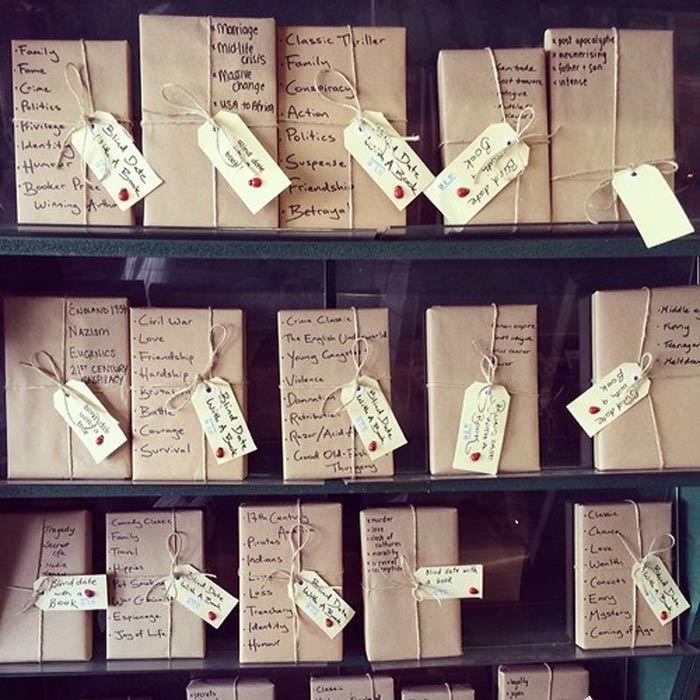 · Family
· Fame
· Crime
· Politics
· Privilege
· Identity
· Humour
· Booker Prize
Winning Author
Blind Date
With A
Book
x Marriage
x Mid-life
crisis
x Massive
change
x USA to Africa
blind date
with a
book
· Classic Thriller
· Family
· Conspiracy
· Action
· Politics
· Suspense
· Friendship
· Betrayal
Blind Date
With A
Book
Blind date
with a
Book
x post apocalyptic
x mesmerising
x father + son
x intense
ENGLAND 1934
NAZISM
EUGENICS
21ST CENTURY
CONSPIRACY
blind date
with a
book
· Civil War
· Love
· Friendship
· Hardship
· Brutality
· Battle
· Courage
· Survival
Blind Date
With A
Book
· Crime Classic
· The English Underworld
· Young Gangster
· Violence
· Damnation
· Retribution
· Razor/Acid
· Good Old-Fash
Thuggery
Blind Date
With A
Book
Blind Date
with a
· Middle
· Funny
· Teenager
· Meltdown
Blind date
with a
Book
Tragedy
Secret
life
Blind date
with a
Book
· Comedy Classic
· Family
· Travel
· Hippies
· Pot Smoking
· War Criminals
· Espionage
· Joy of Life
Blind Date
With A
Book
· 17th Century
· Pirates
· Indians
· Love
· Loss
· Treachery
· Identity
· Humour
Blind Date
With A
Book
x murder
x love
x clash of
cultures
x morality
x survival
Blind date with
a book
· Classic
· Chance
· Love
· Wealth
· Convicts
· Envy
· Mystery
· Coming of Age
Blind Date
With A
Book
· secrets
· Classic
x loyalty
x Japan